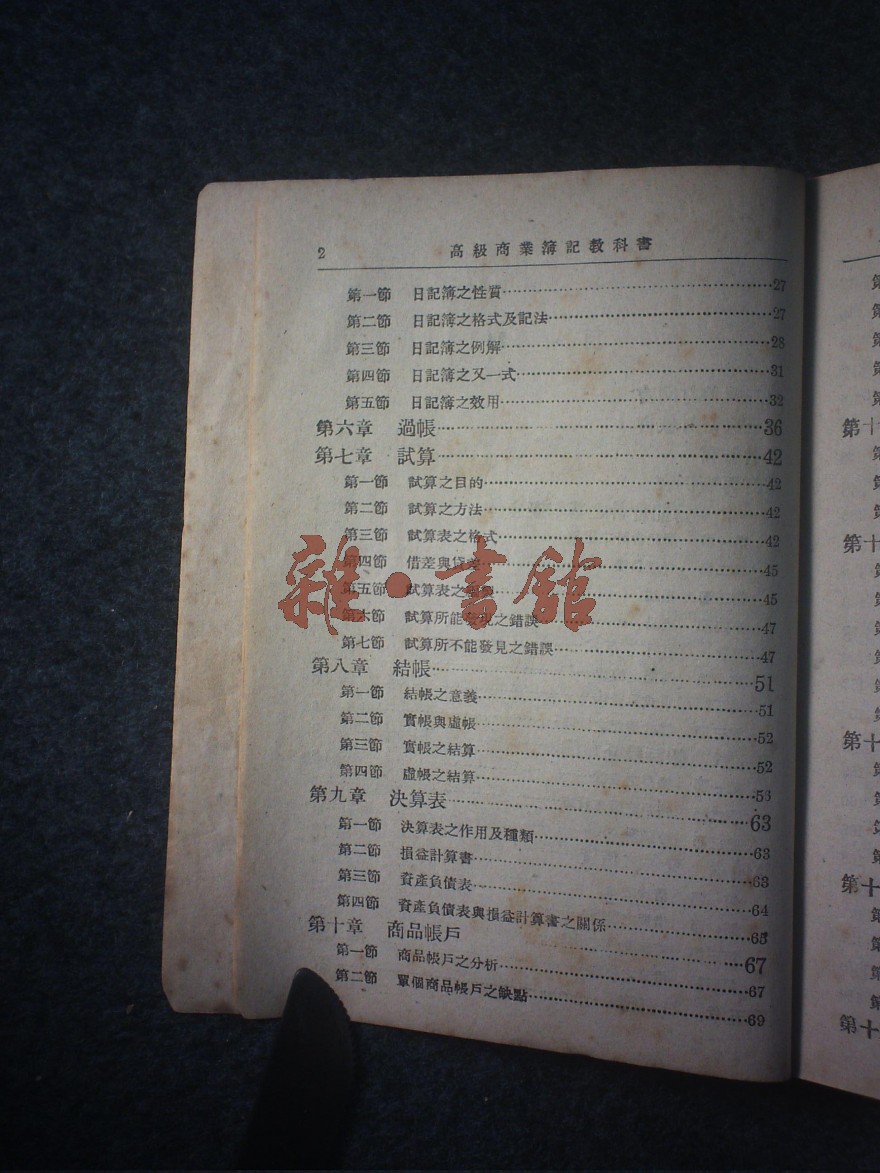 2 高級商業簿記教科書
第一節 日記簿之性質……27
第二節 日記簿之格式及記法……27
第三節 日記簿之例解……28
第四節 日記簿之又一式……31
第五節 日記簿之效用……32
第六章 過帳……36
第七章 試算……42
第一節 試算之目的……42
第二節 試算之方法……42
第三節 試算表之格式……42
第四節 借差與貸差……45
第五節 試算表之……45
第六節 試算所能發見之錯誤……47
第七節 試算所不能發見之錯誤……47
第八章 結帳……51
第一節 結帳之意義……51
第二節 實帳與虛帳……52
第三節 實帳之結算……52
第四節 虛帳之結算……53
第九章 決算表……63
第一節 決算表之作用及種類……63
第二節 損益計算書……63
第三節 資產負債表……64
第四節 資產負債表與損益計算書之關係……65
第十章 商品帳戶……67
第一節 商品帳戶之分析……67
第二節 單個商品帳戶之缺點……69
雜·書館